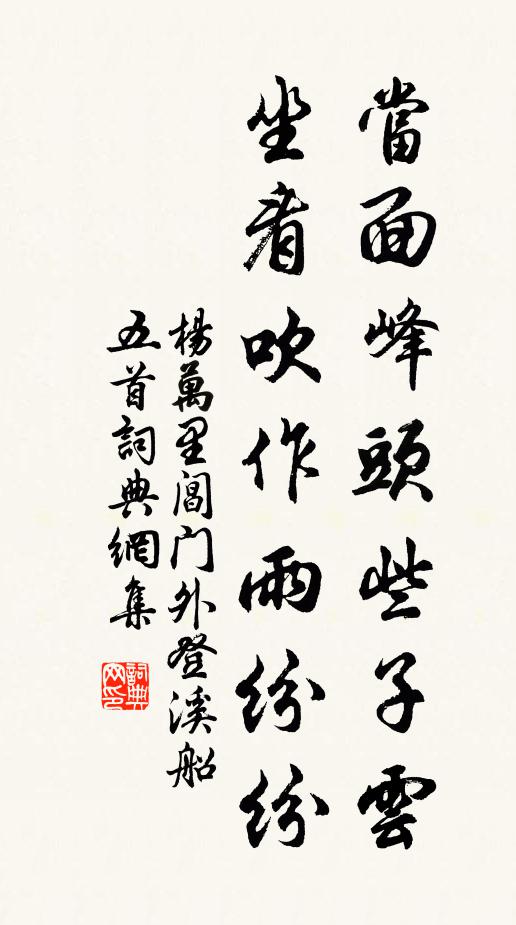 當面峰頭些子雲
坐看吹作雨紛紛
楊萬里閶门外登溪船
五首詞典網集
詞典网印